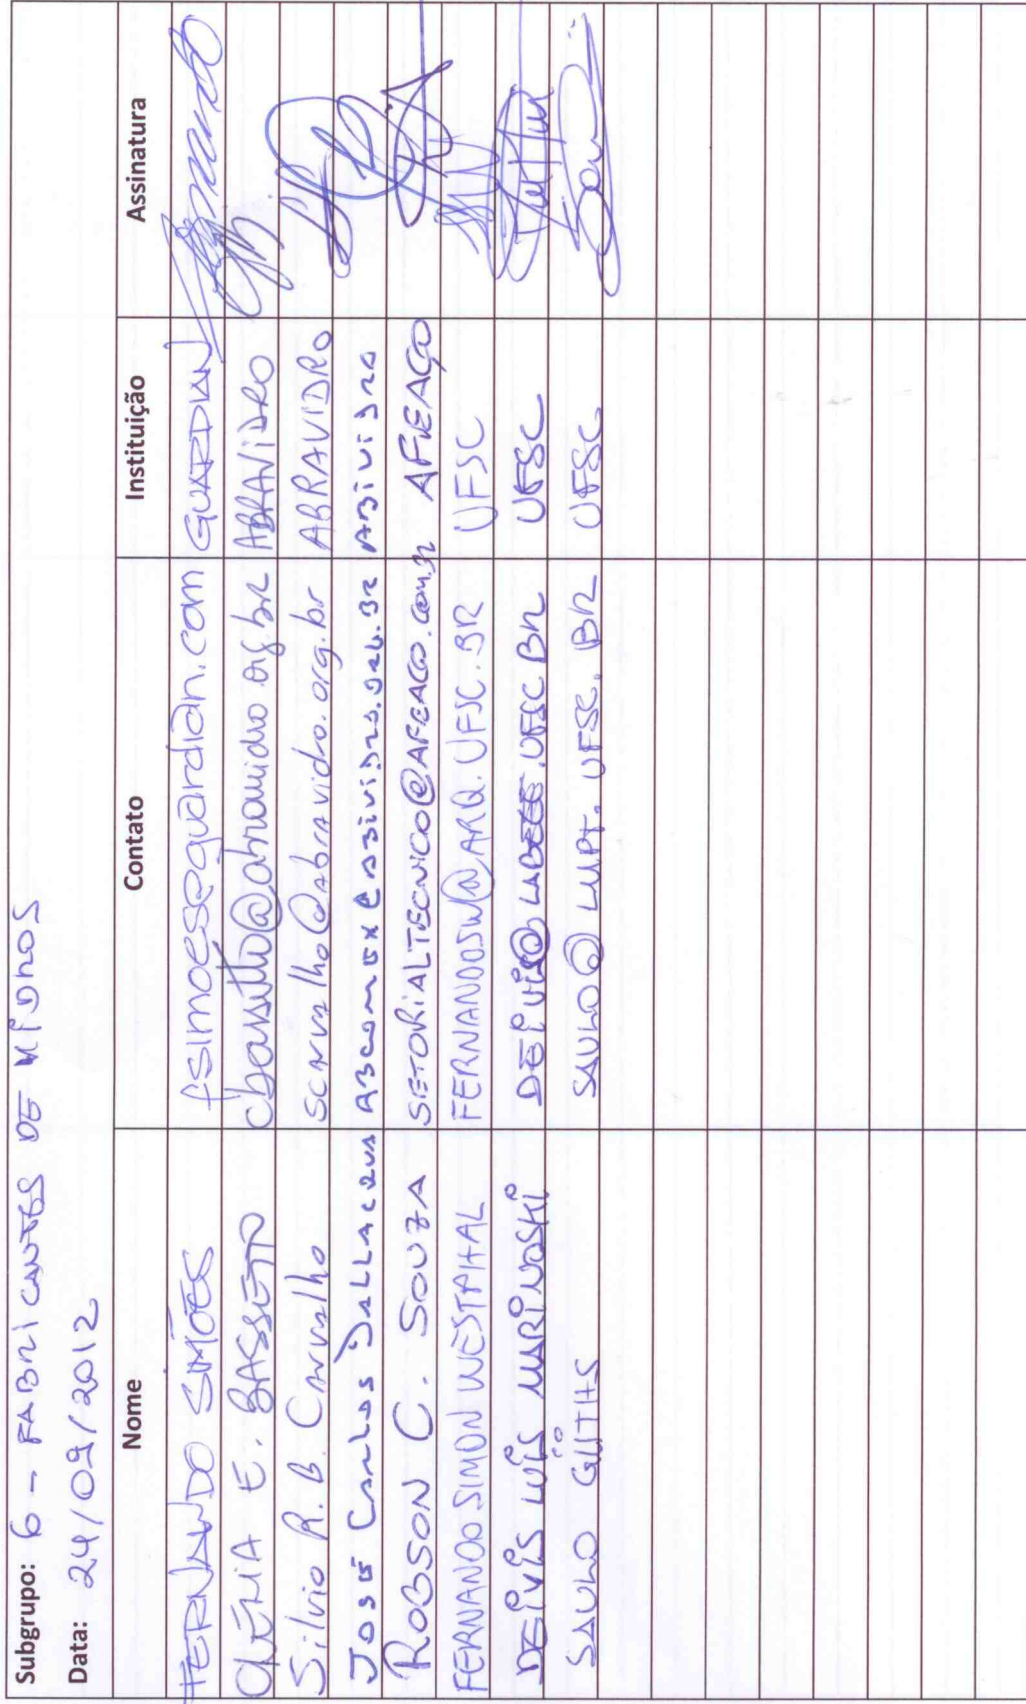 Subgrupo: 6 - FABRICANTES DE VIDROS
Data: 24/09/2012
Nome Contato Instituição Assinatura
FERNANDO SIMÕES fsimoes@guardian.com GUARDIAN
CLÉLIA E. BASSETTO cbassetto@abravidro.org.br ABRAVIDRO
Silvio R. B. Carvalho scarvalho@abravidro.org.br ABRAVIDRO
José Carlos ABIVIDRO
ROBSON C. SOUZA SETORIALTECNICO@AFEACO.com.br AFEAÇO
FERNANDO SIMON WESTPHAL FERNANDOSW@ARQ.UFSC.BR UFSC
DEIVIS LUIS MARINOSKI DEIVIS@LABEEE.UFSC.BR UFSC
SAULO GÜTHS SAULO@LMPT.UFSC.BR UFSC